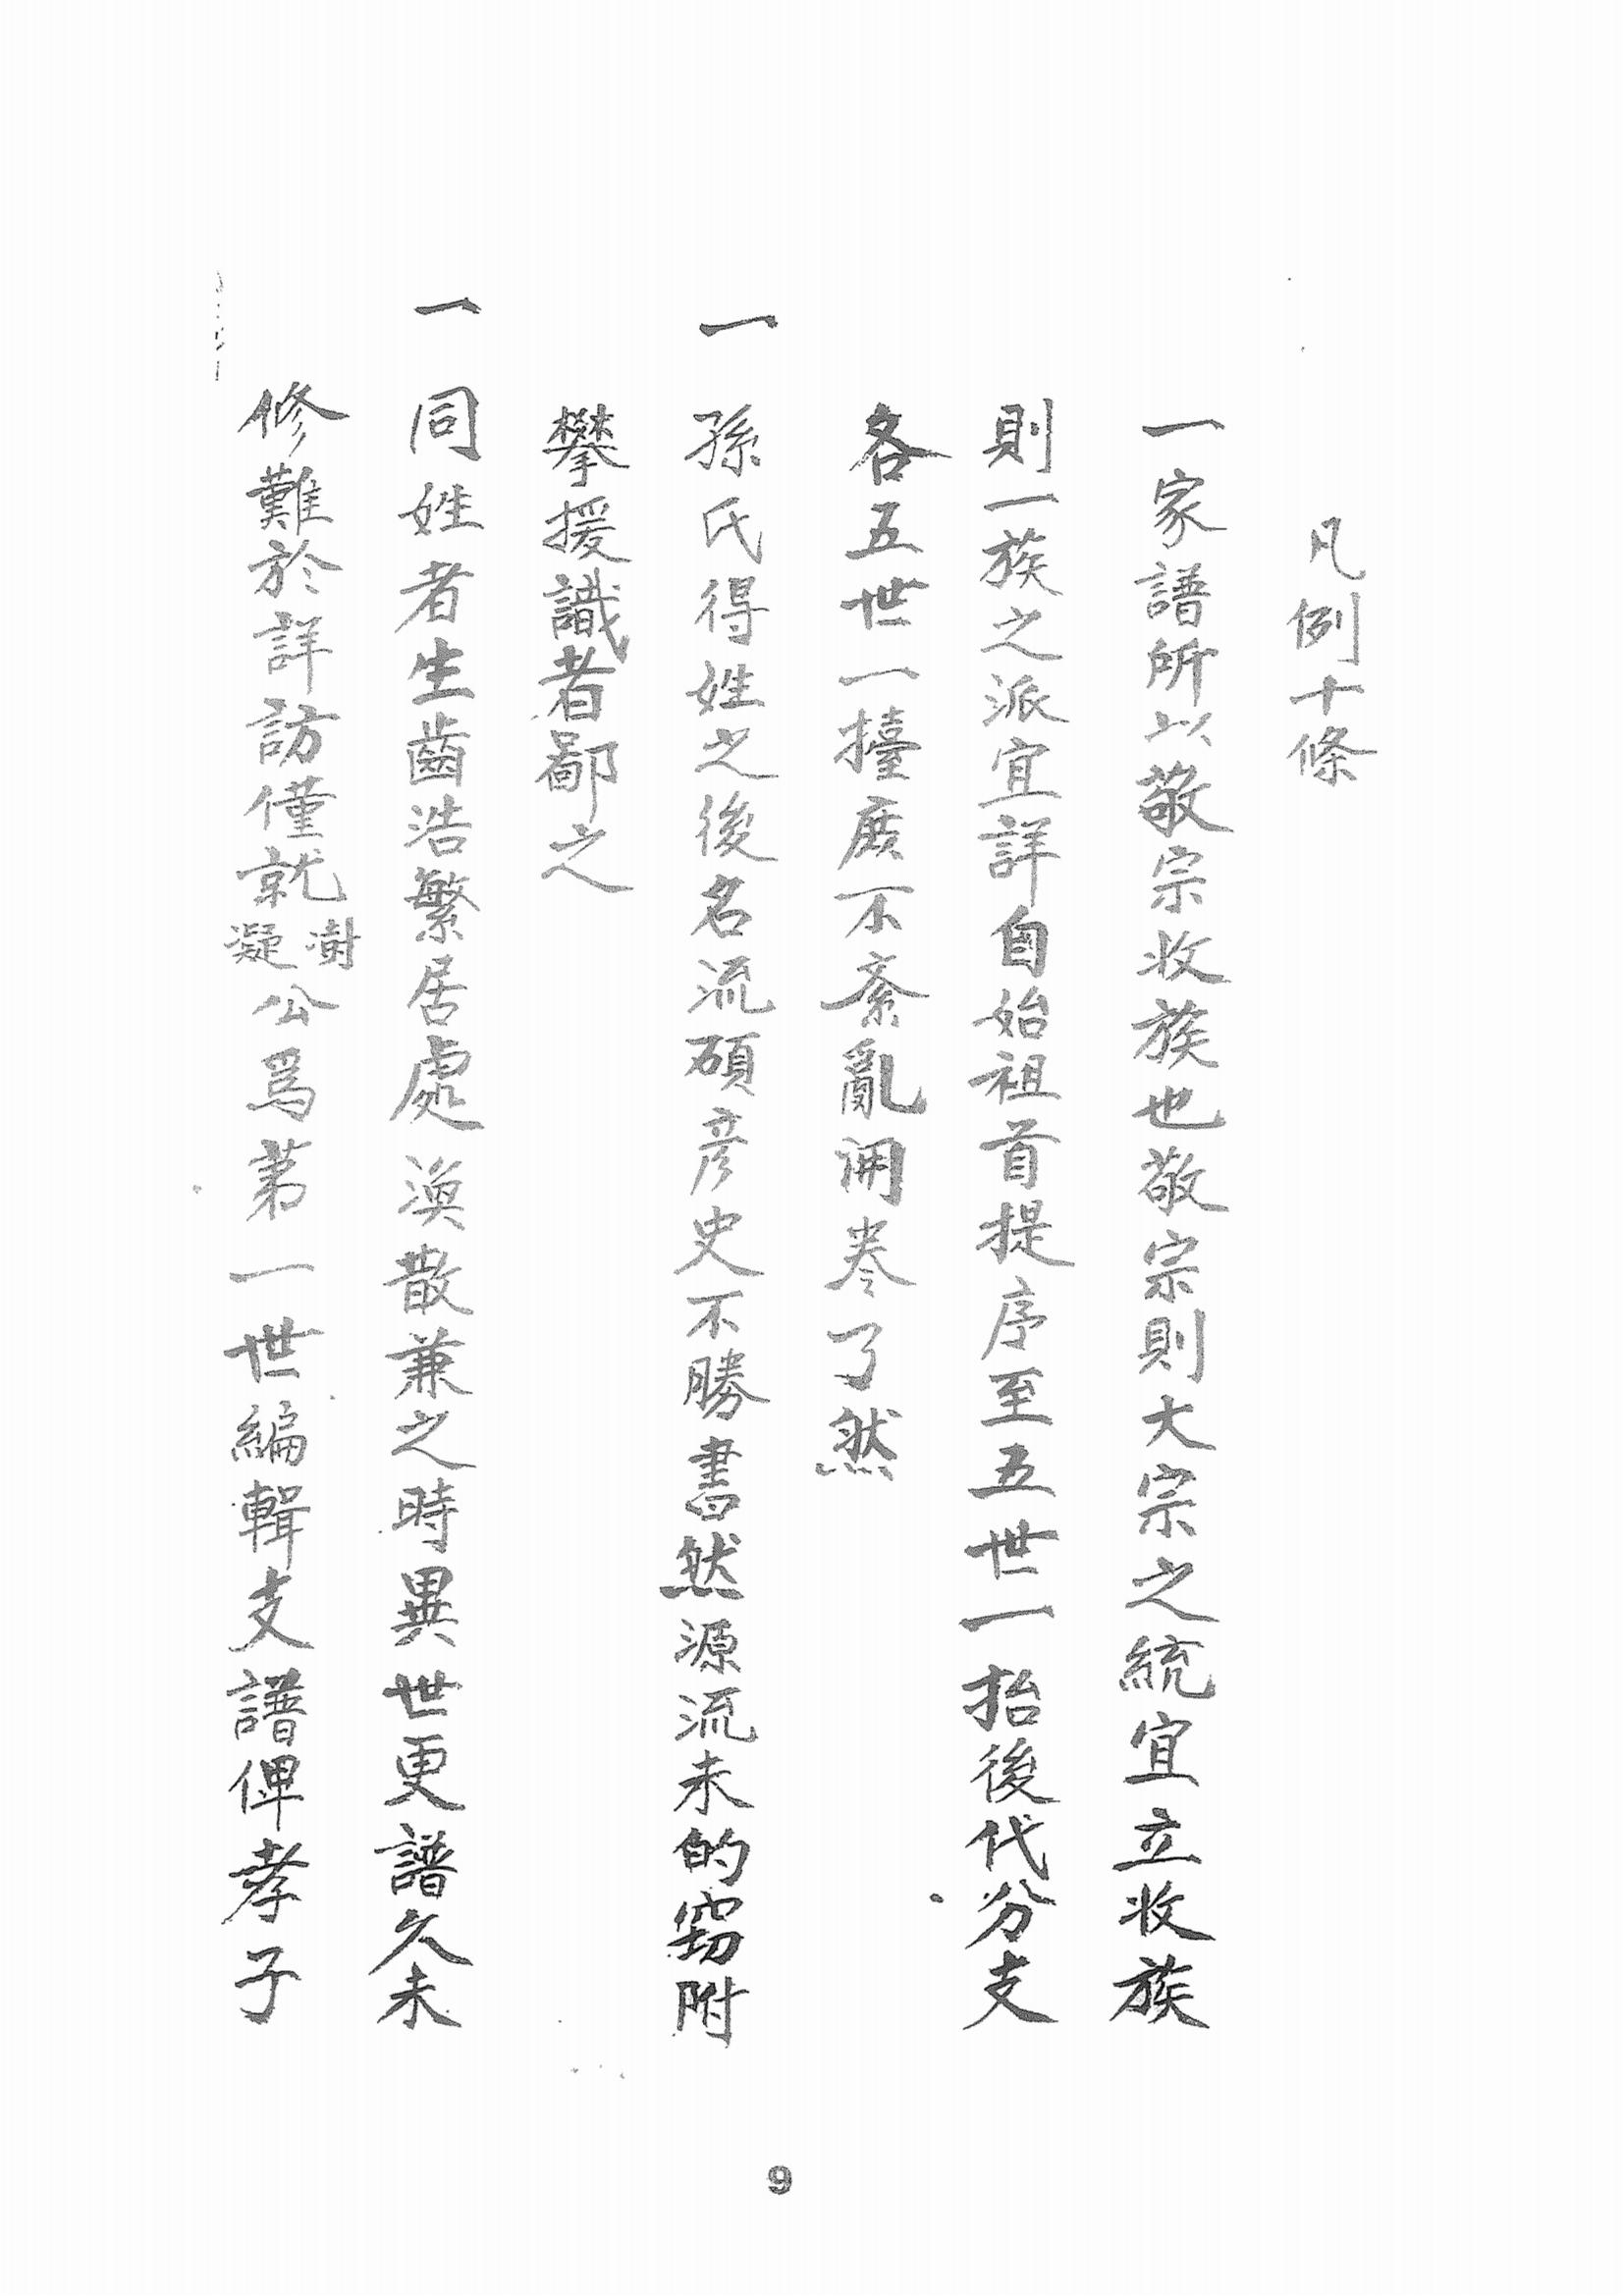 凡例十條
一家譜所以敬宗收族也敬宗則大宗之統宜立收族
則一族之派宜詳自始祖首提序至五世一抬後代分支
各五世一擡庶不紊亂開卷了然
一孫氏得姓之後名流碩彦史不勝書然源流未的竊附
攀援識者鄙之
一同姓者生齒浩繁居處渙散兼之時異世更譜久未
修難於詳訪僅就澍凝公爲苐一世編輯支譜俾孝子
9